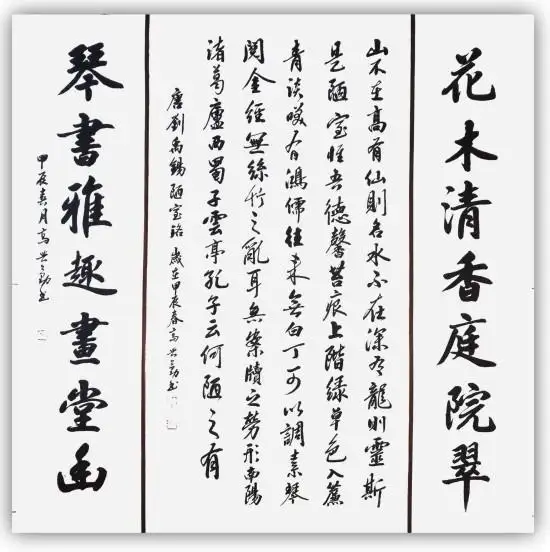 花木清香庭院翠
山不在高有仙則名水不在深有龍則靈斯
是陋室惟吾德馨苔痕上階綠草色入簾
青談笑有鴻儒往來無白丁可以調素琴
閱金經無絲竹之亂耳無案牘之勞形南陽
諸葛廬西蜀子雲亭孔子云何陋之有
唐劉禹錫陋室銘 歲在甲辰春高勤书
琴書雅趣畫堂幽
甲辰春月高勤书